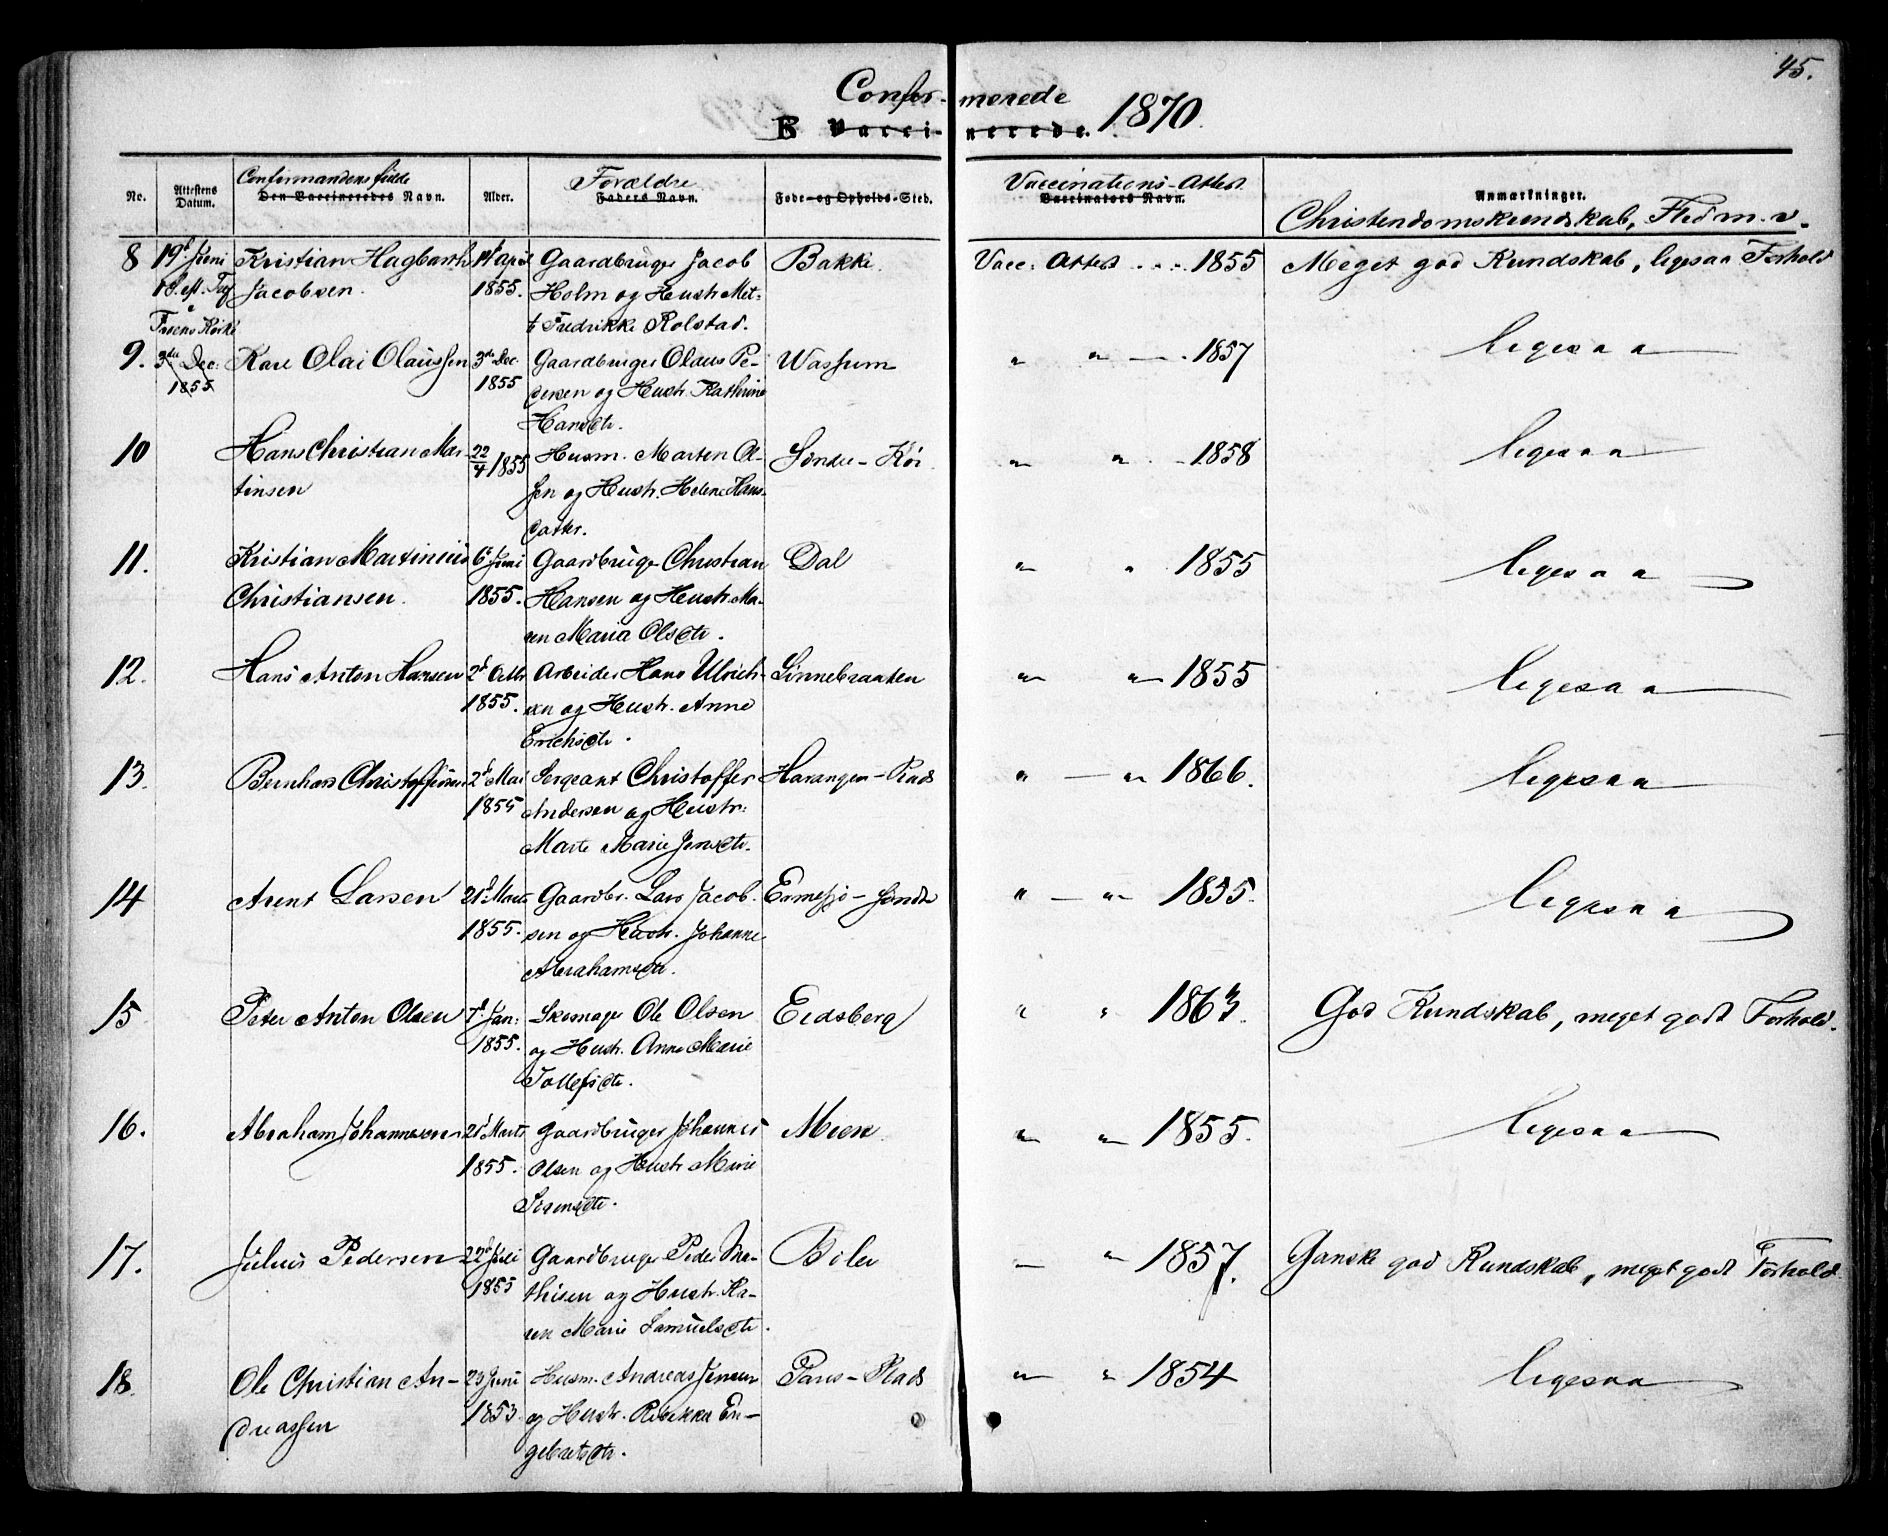 45.
Confirmerede
B Vaccinerede. 1870.
No.
Attestens Datum.
Confirmandens fulde
Den Vaccineredes Navn.
Alder.
Forældre
Faders Navn.
Føde- og Opholds-Sted.
Vaccinations-Attest
Vaccinators Navn.
Anmærkninger.
Christendomskundskab, Flid m. v.
8 19d Juni Kristian Hagbarth 14 April Gaardbruger Jacob Bakke. Vacc. Attest . . . 1855 Meget god Kundskab, ligesaa Forhold
18. eft. Tref Jacobsen. 1855. Holm og Hustr Met-
i Trøens Kirke te Fredrikke Rolstad.
9. 3de Dec: Kare Olai Olaussen 3de Dec. Gaardbruger Olaus Pe- Wassum " " — 1857 ligesaa
1855 1855 dersen og Hustr. Kathrine
Hansdtr.
10 Hans Christian Mar- 22/4 1855 Husm. Marten Ol- Søndre-Kør " " 1858 ligesaa
tinsen sen og Hustr. Helene Hans-
datter.
11. Kristian Martinius 6t Juni Gaardbruger Christian Dal " " 1855 ligesaa
Christiansen. 1855. Hansen og Hustr. Ma-
ren Maria Olsdtr.
12. Hans Anton Hansen 2d Octbr Arbeider Hans Ulrich- Linnebraaten " " 1855 ligesaa
1855. sen og Hustr. Anne
Erichsdtr.
13. Bernhard Christoffersen 2d Mai Sergeant Christoffer Harangen-Plads " — " 1866. ligesaa
1855 Andersen og Hustr:
Marte Marie Jensdtr.
14 Arent Larsen 21d Marts Gaardbr. Lars Jacob- Ermesjø-søndre " — " 1855. ligesaa
1855. sen og Hustr. Johanne
Abrahamsdtr.
15 Peter Anton Olsen 7d Jan: Skomager Ole Olsen Eidsberg " " 1863. God Kundskab, meget godt Forhold.
1855. og Hustr. Anne Marie
Tollefsdtr.
16. Abraham Johannesen 21 Marts Gaardbruger Johannes Moen. " " 1855. ligesaa
1855. Olsen og Hustr Marie
Svensdtr.
17. Julius Pedersen 22d Juli Gaardbruger Peder Ma- Boler — " 1857. Ganske god Kundskab, meget godt Forhold
1855 thisen og Hustr. Ka-
ren Marie Samuelsdtr.
18. Ole Christian An- 23 Juni Husm. Andreas Jensen Paris-Plads " " 1854 ligesaa
dreassen 1853. og Hustr. Rebekka En-
gebretsdtr.